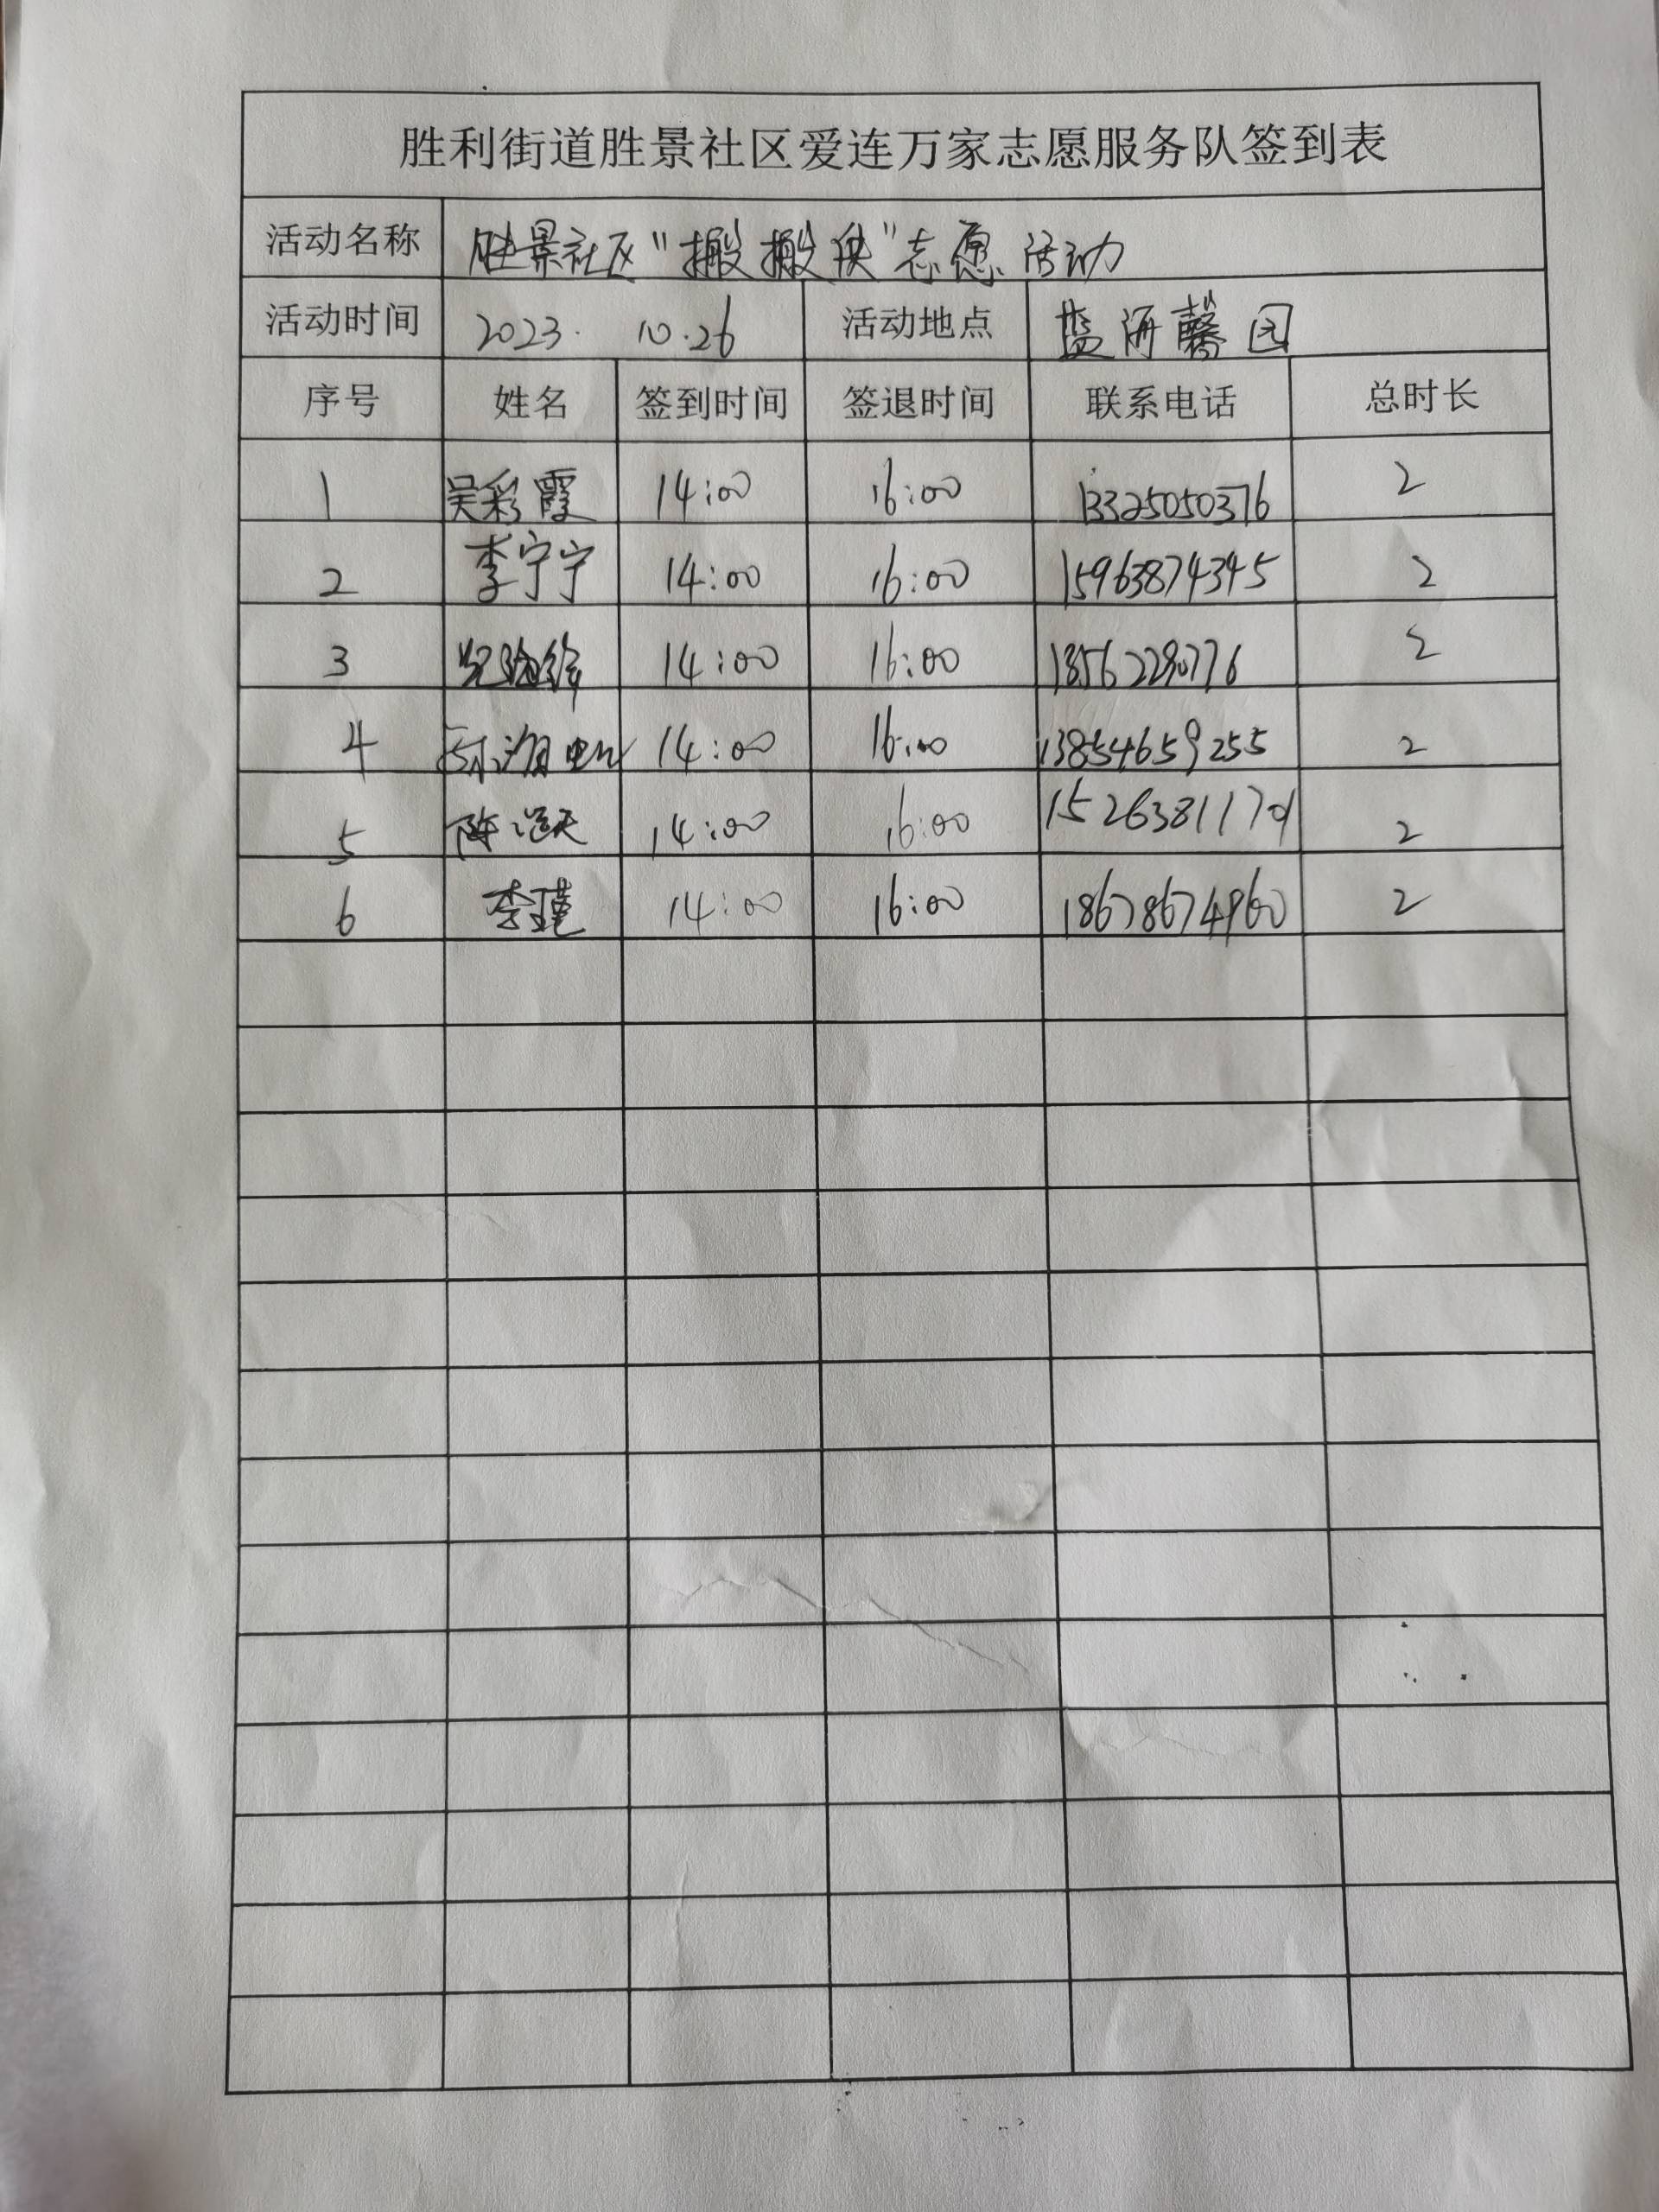 胜利街道胜景社区爱连万家志愿服务队签到表
活动名称 胜景社区"搬搬队"志愿活动
活动时间 2023. 10.26 活动地点 蓝海馨园
序号 姓名 签到时间 签退时间 联系电话 总时长
1 吴彩霞 14:00 16:00 13325050376 2
2 李宁宁 14:00 16:00 15963874345 2
3 14:00 16:00 2
4 14:00 16:00 13854659255 2
5 陈 14:00 16:00 2
6 李瑾 14:00 16:00 18678674960 2